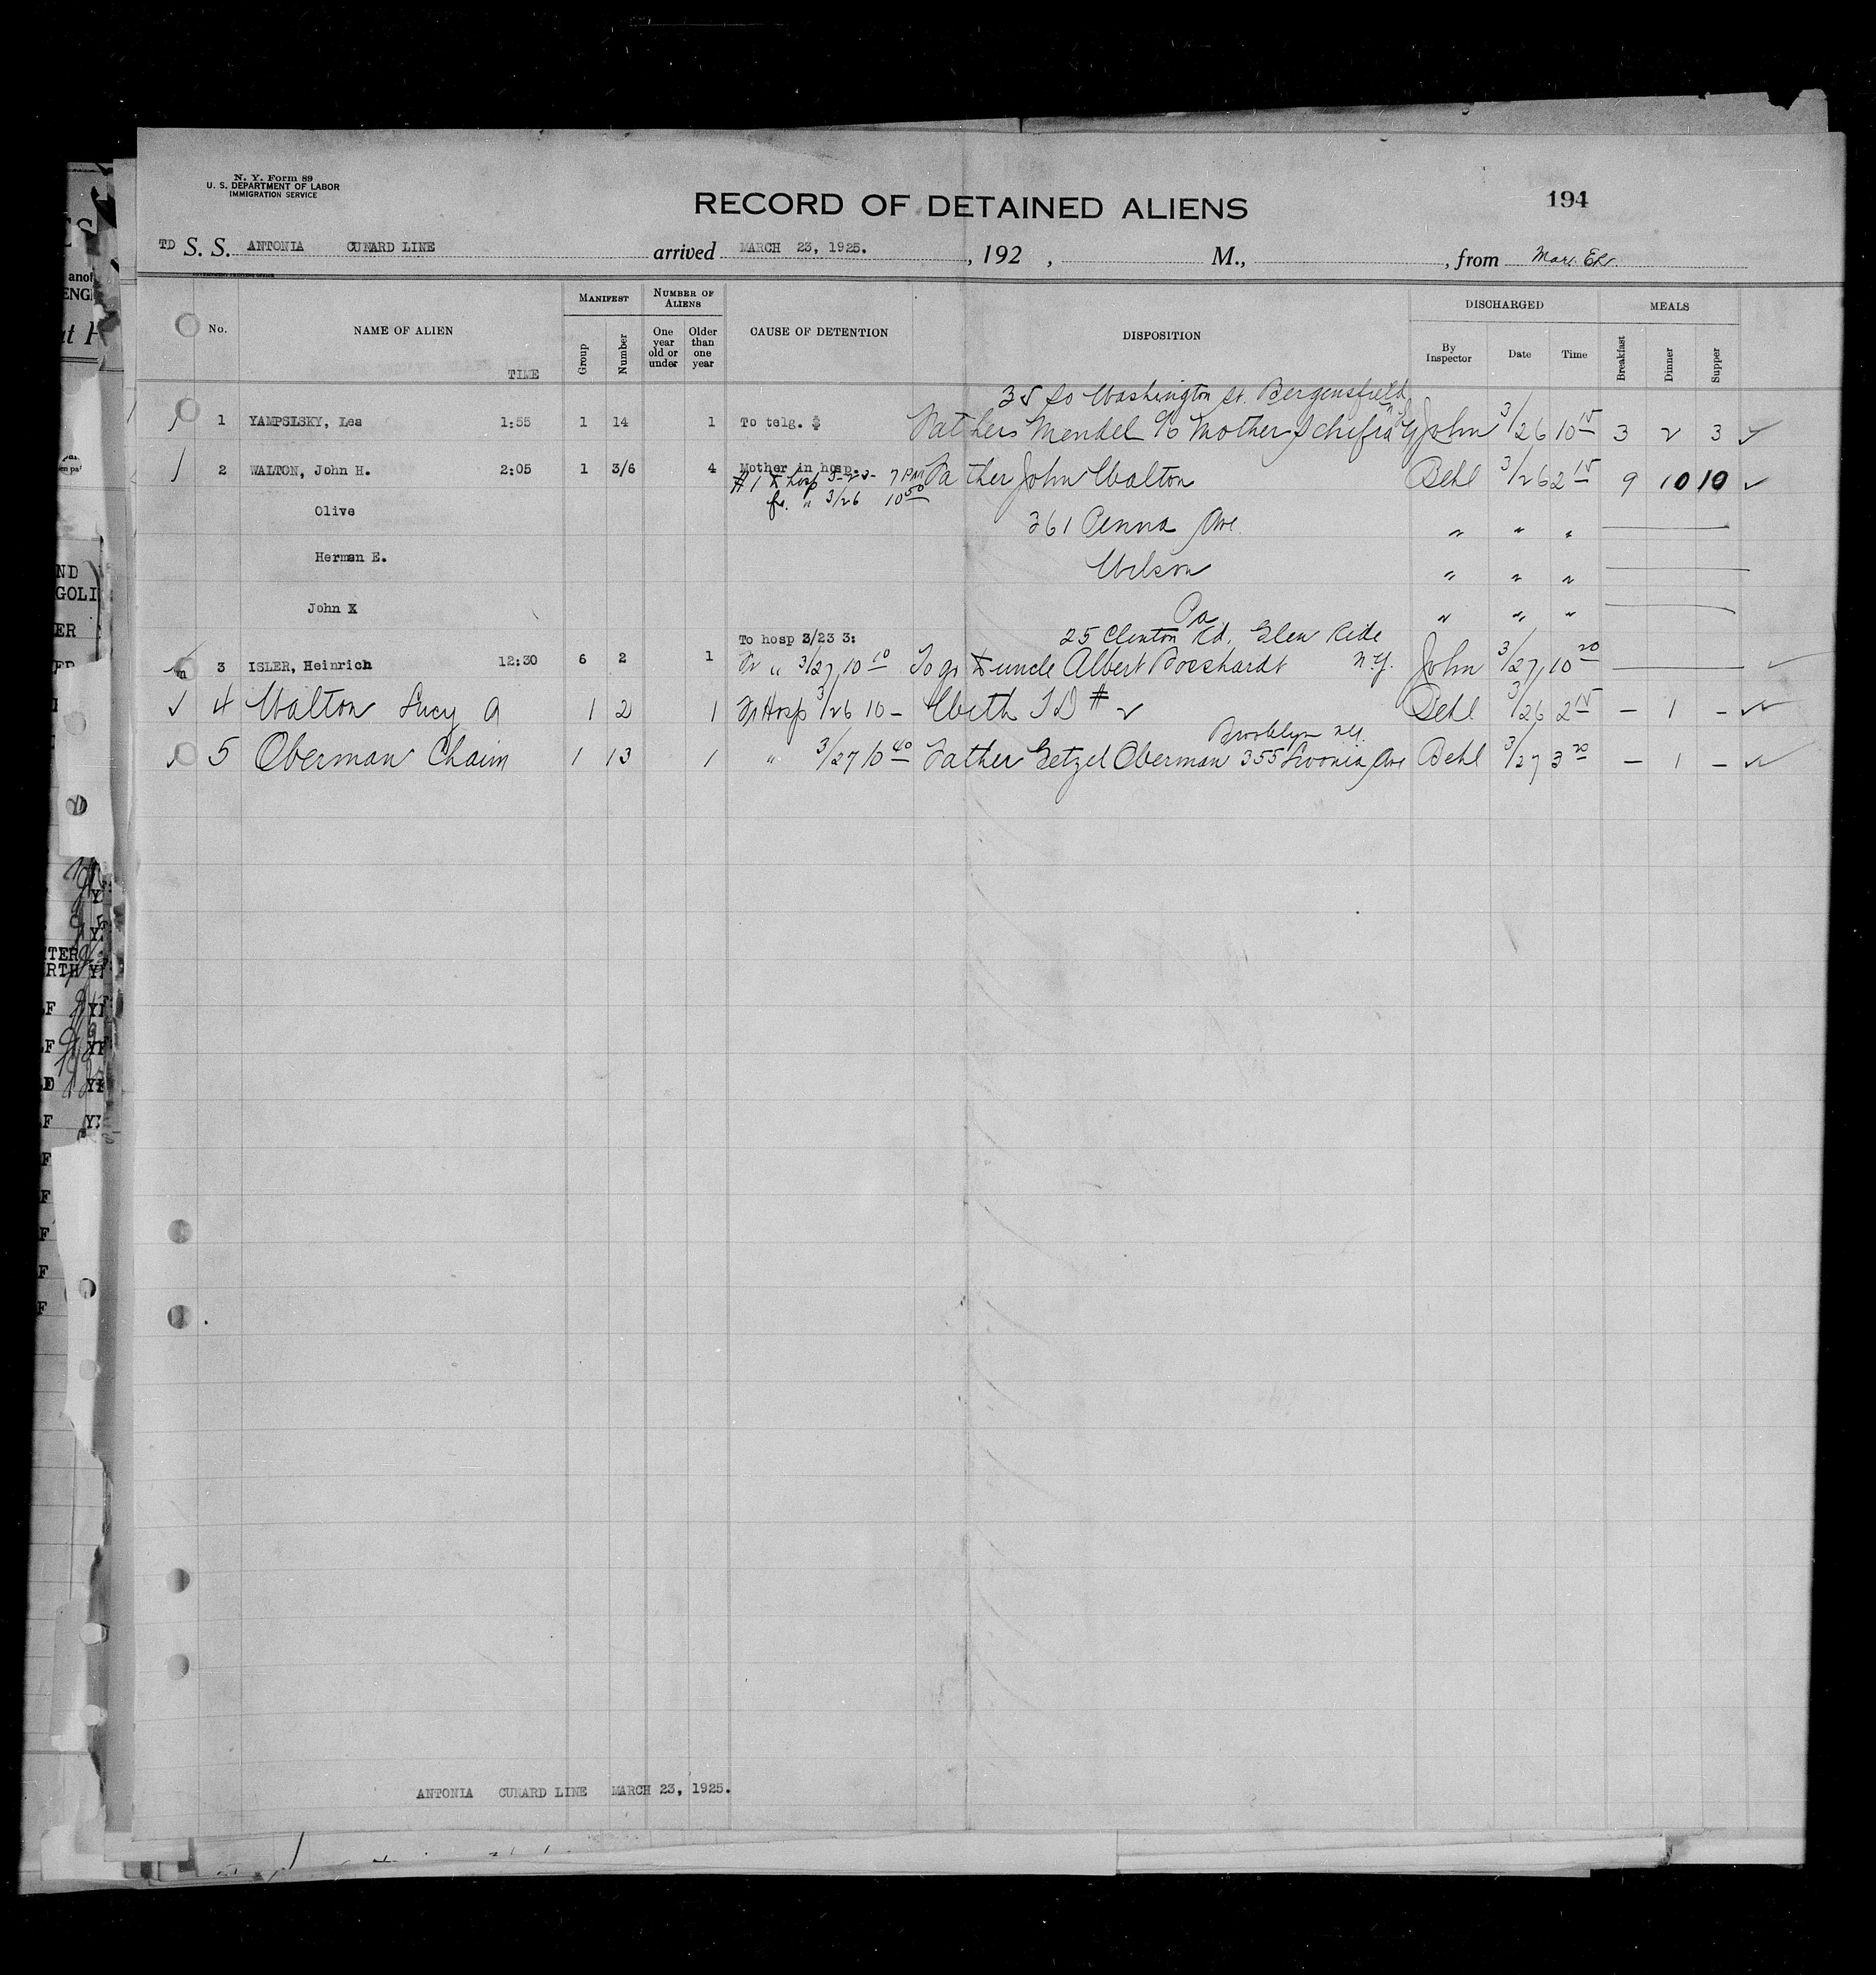 N. Y. Form 89
U. S. DEPARTMENT OF LABOR
IMMIGRATION SERVICE
RECORD OF DETAINED ALIENS
194
TD S. S. ANTONIA CUNARD LINE arrived MARCH 23, 1925. , 192 , M., , from
No. NAME OF ALIEN TIME MANIFEST Group Number NUMBER OF ALIENS One year old or under Older than one year CAUSE OF DETENTION DISPOSITION DISCHARGED By Inspector Date Time MEALS Breakfast Dinner Supper
35 So Washington St. Bergensfield
1 YAMPSLSKY, Lea 1:55 1 14 1 To telg. $ Fathers Mendel c/o Mother Schifra John 3/26 10 15 3 2 3
2 WALTON, John H. 2:05 1 3/6 4 Mother in hosp. Father John Walton Behl 3/26 2 15 9 10 10
#1 hosp 3-23- 7 PM
fr. " 3/26 10 50
Olive 361 Penna Ave " " "
Herman E. Wilson " " "
John X Pa " " "
To hosp 3/23 3: 25 Clinton Rd. Glen Ride
3 ISLER, Heinrich 12:30 6 2 1 Fr " 3/27 10 10 To gr uncle Albert Bosshardt N.Y. John 3/27 10 20
4 Walton Lucy A 1 2 1 Fr Hosp 3/26 10 - With TD # 2 Behl 3/26 2 15 - 1 -
Brooklyn NY.
5 Oberman Chaim 1 13 1 " 3/27 10 40 Father Getzel Oberman 355 Livonia Ave Behl 3/27 3 20 - 1 -
ANTONIA CUNARD LINE MARCH 23, 1925.